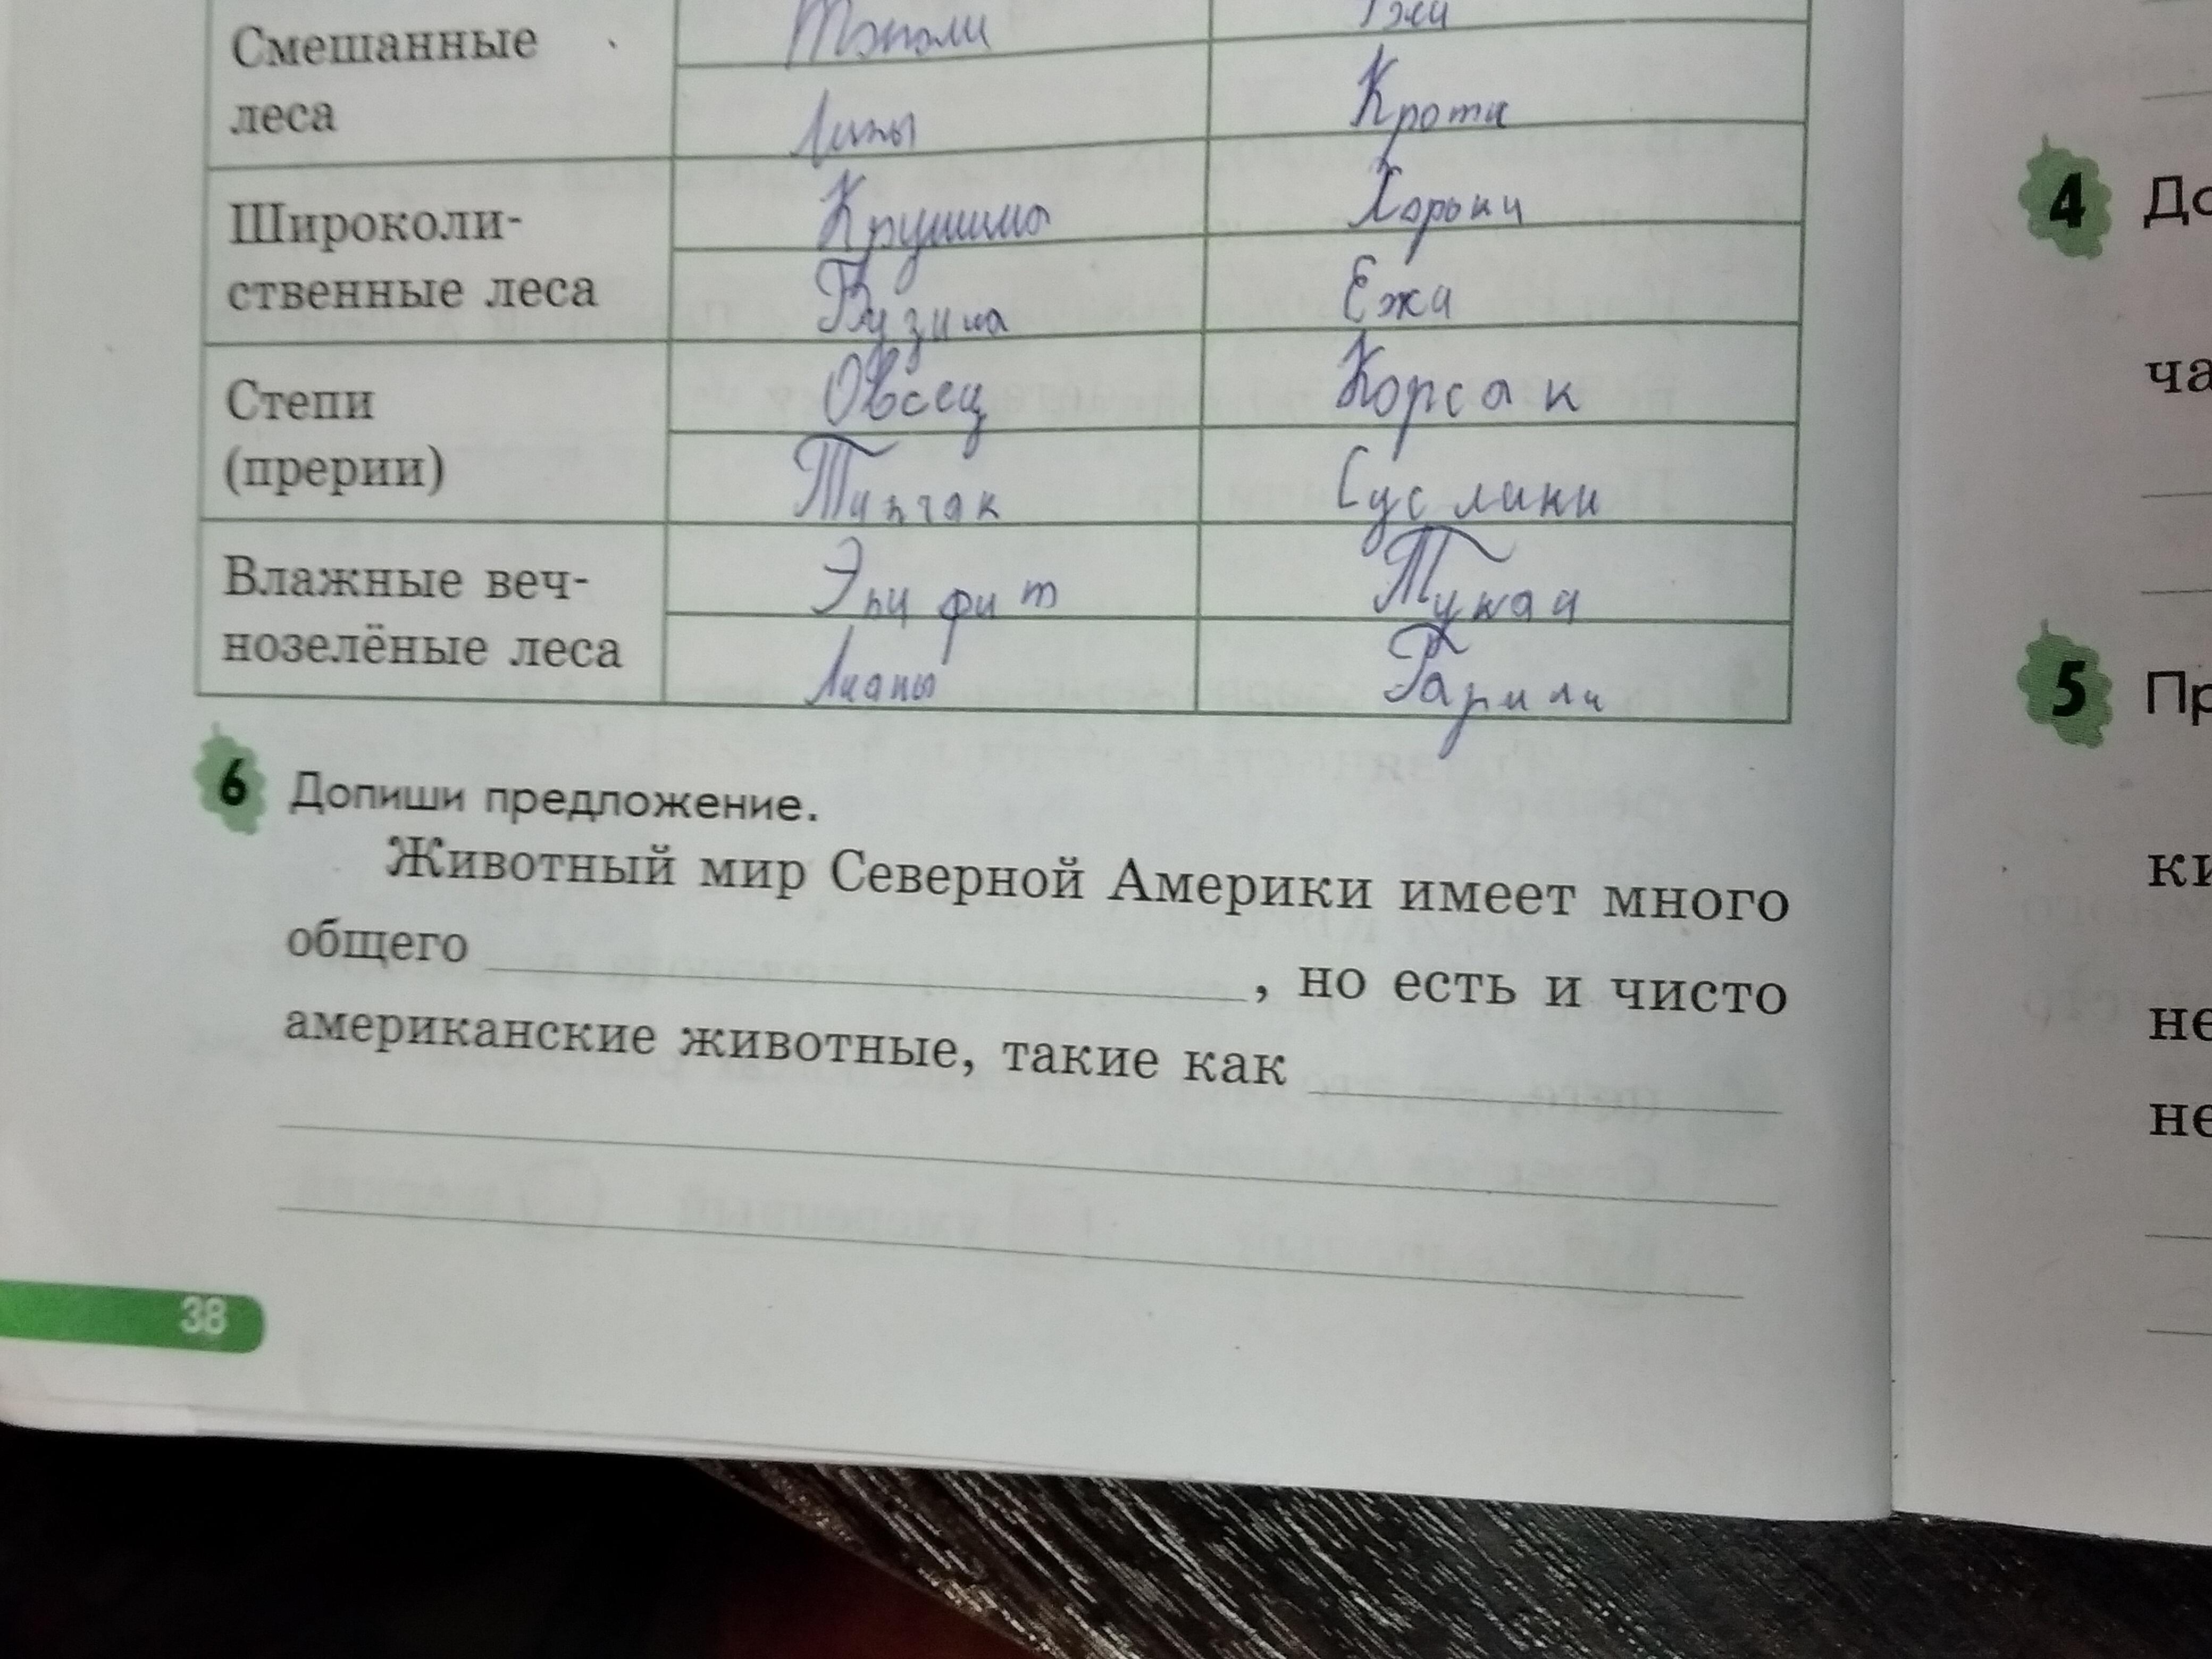 Смешанные
леса
Тополи
Ежи
Липы
Кроты
Широколи-
ственные леса
Крушина
Хорьки
Бузина
Ежи
Степи
(прерии)
Овсец
Корсак
Типчак
Суслики
Влажные веч-
нозелёные леса
Эпифит
Тукан
Лианы
Гарилы
6 Допиши предложение.
Животный мир Северной Америки имеет много
общего , но есть и чисто
американские животные, такие как
38
4 До
ча
5 Пр
ки
не
не